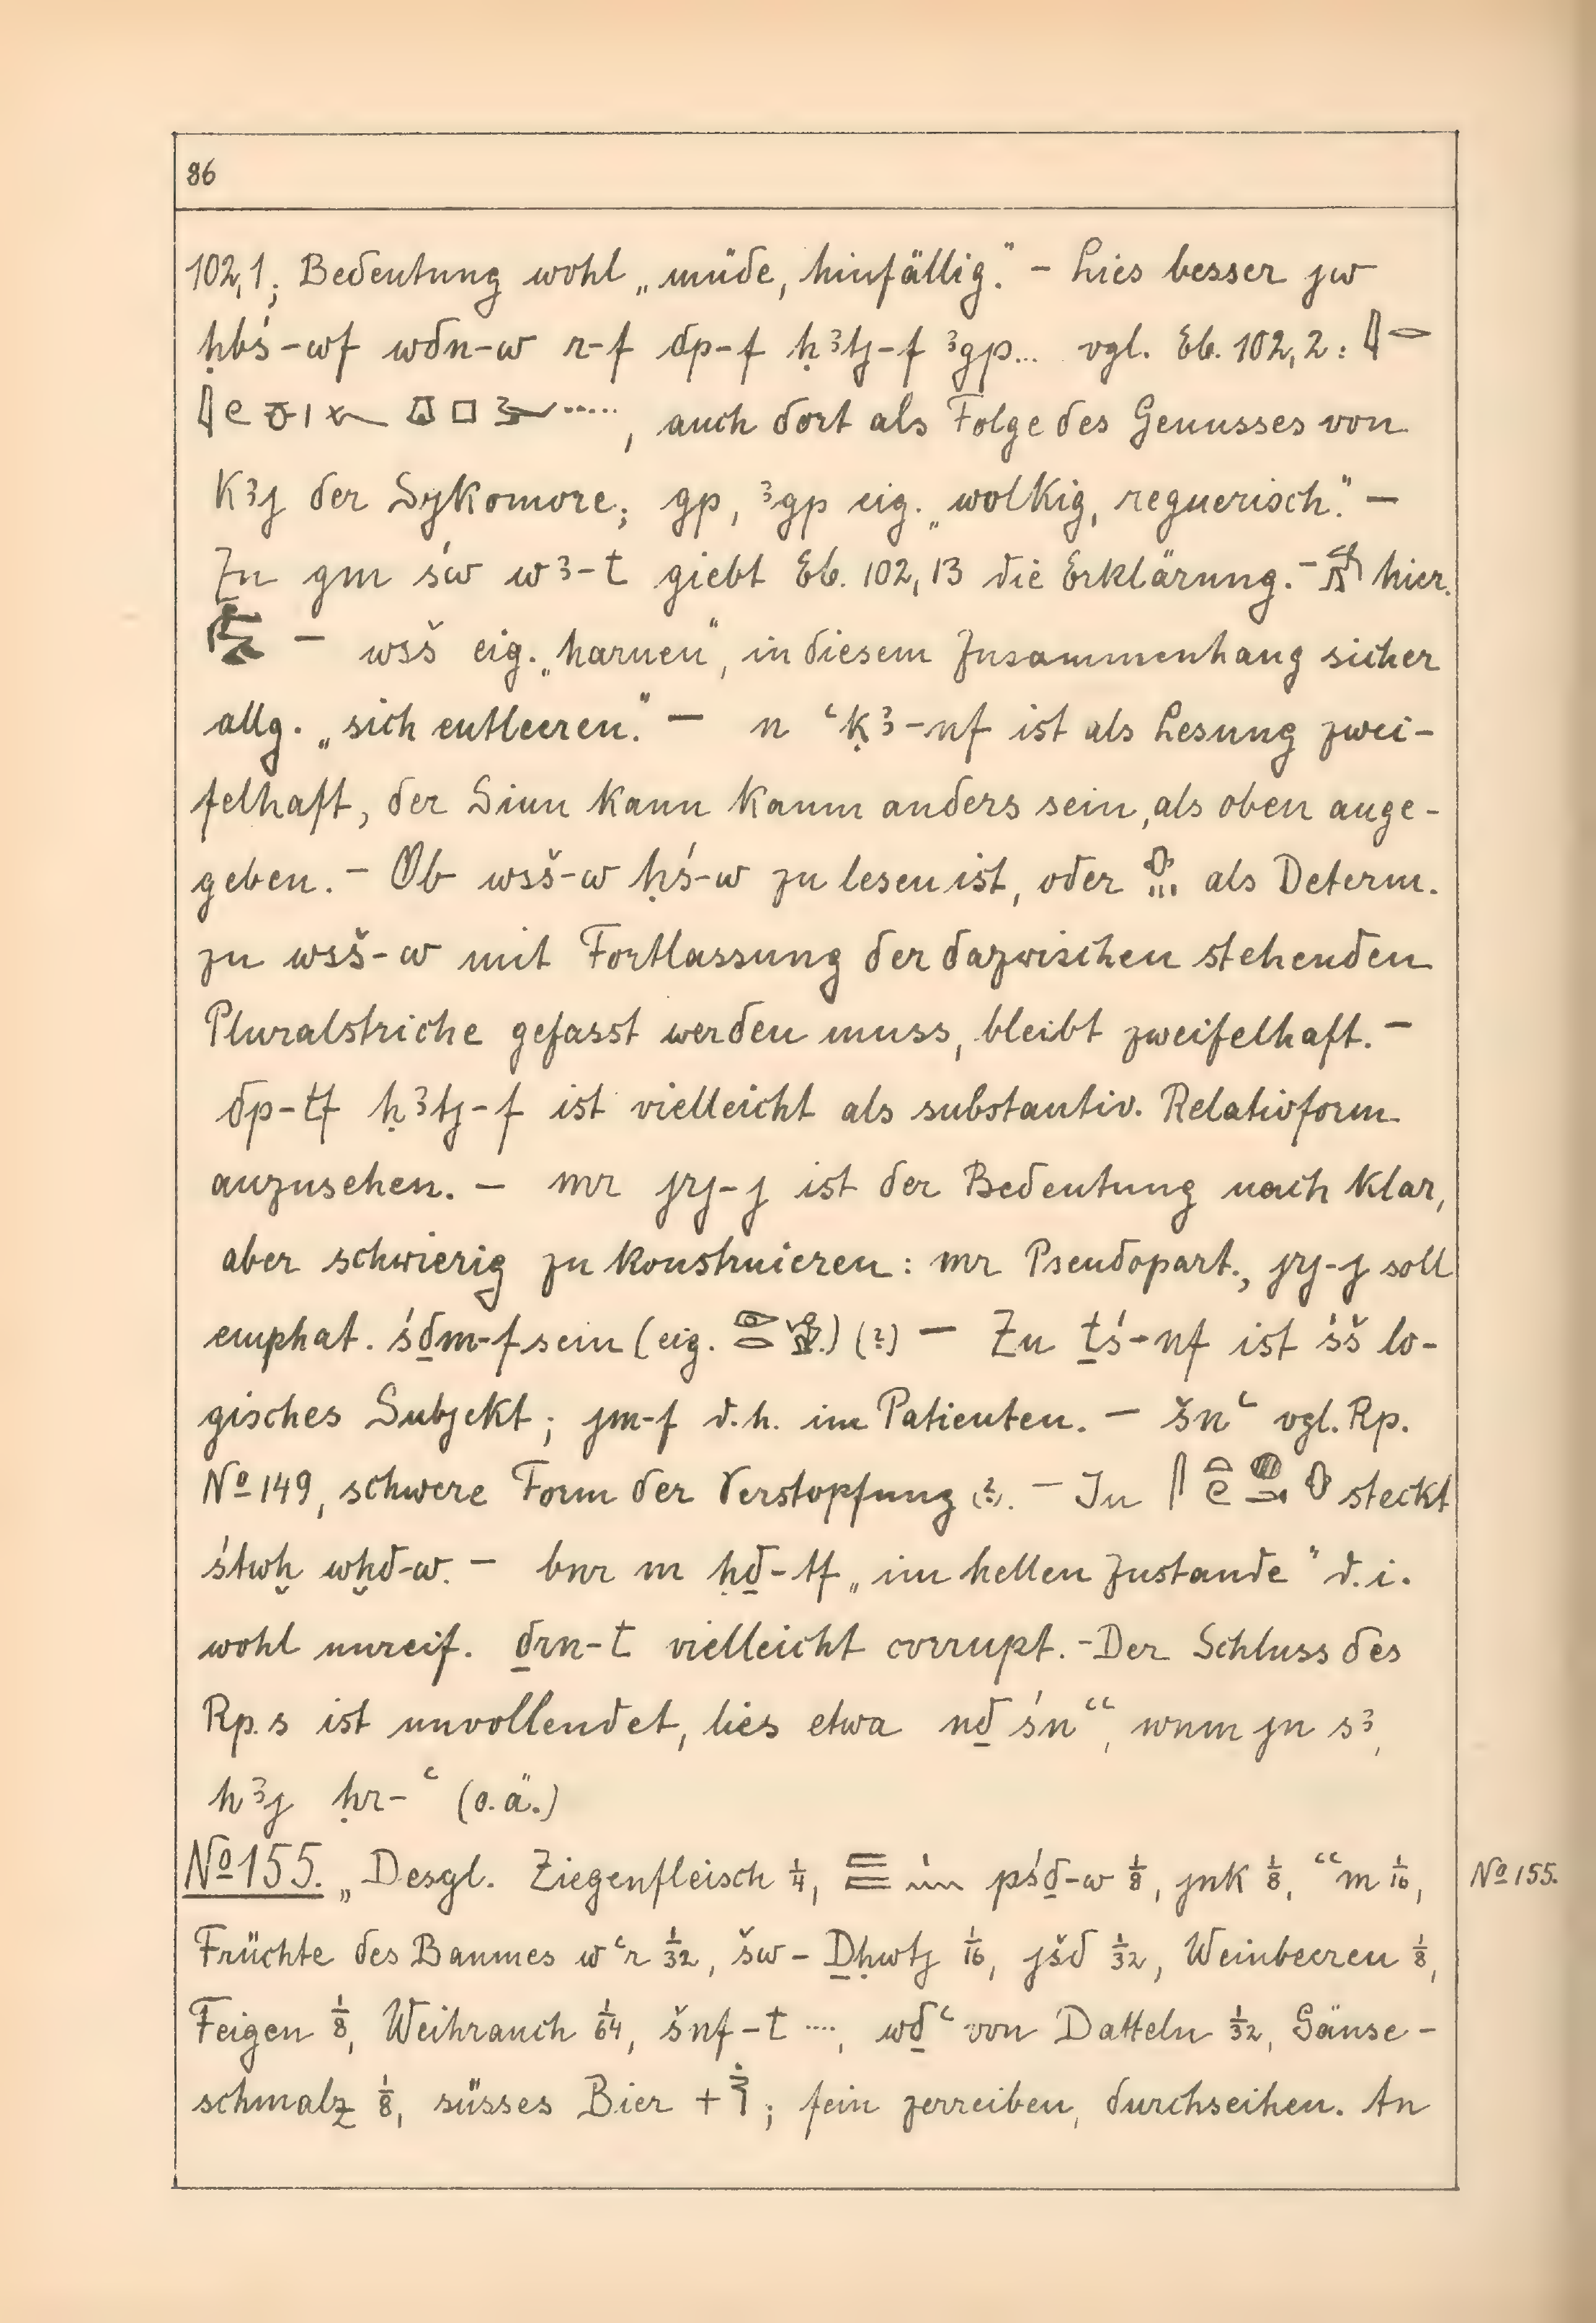 86
102,1; Bedeutung wohl „müde, hinfällig." – Lies besser jw
ḥbś-wf wdn-w r-f dp-f ḥꜣtj-f ꜣgp... vgl. Eb. 102,2:
....., auch dort als Folge des Genusses von
kꜣj der Sykomore; gp, ꜣgp eig. „wolkig, regnerisch." –
Zu gm św wꜣ-t giebt Eb. 102,13 die Erklärung. – hier.
– wsš eig. „harnen", in diesem Zusammenhang sicher
allg. „sich entleeren." – n ꜥḳꜣ-nf ist als Lesung zwei-
felhaft, der Sinn kann kaum anders sein, als oben ange-
geben. – Ob wsš-w ḥś-w zu lesen ist, oder als Determ.
zu wsš-w mit Fortlassung der dazwischen stehenden
Pluralstriche gefasst werden muss, bleibt zweifelhaft. –
dp-tf ḥꜣtj-f ist vielleicht als substantiv. Relativform
anzusehen. – mr jrj-j ist der Bedeutung nach klar,
aber schwierig zu konstruieren: mr Pseudopart., jrj-j soll
emphat. śḏm-f sein (eig. ) (?) – Zu ṯś-nf ist śš lo-
gisches Subjekt; jm-f d.h. im Patienten. – šnꜥ vgl. Rp.
№ 149, schwere Form der Verstopfung (?). – In steckt
śtwḫ wḫd-w. – bnr m ḥḏ-tf „im hellen Zustande" d.i.
wohl unreif. ḏrn-t vielleicht corrupt. - Der Schluss des
Rp.s ist unvollendet, lies etwa nḏ śnꜥꜥ, wnm jn sꜣ,
hꜣj ḥr-ꜥ (o.ä.)
№ 155. „Desgl. Ziegenfleisch 1/4, im pśḏ-w 1/8, jnk 1/8, ꜥꜥm 1/16,
№ 155.
Früchte des Baumes wꜥr 1/32, šw-Ḏḥwtj 1/16, jšd 1/32, Weinbeeren 1/8,
Feigen 1/8, Weihrauch 1/64, šnf-t ...., wḏꜥ von Datteln 1/32, Gänse-
schmalz 1/8, süsses Bier + ; fein zerreiben, durchseihen. An